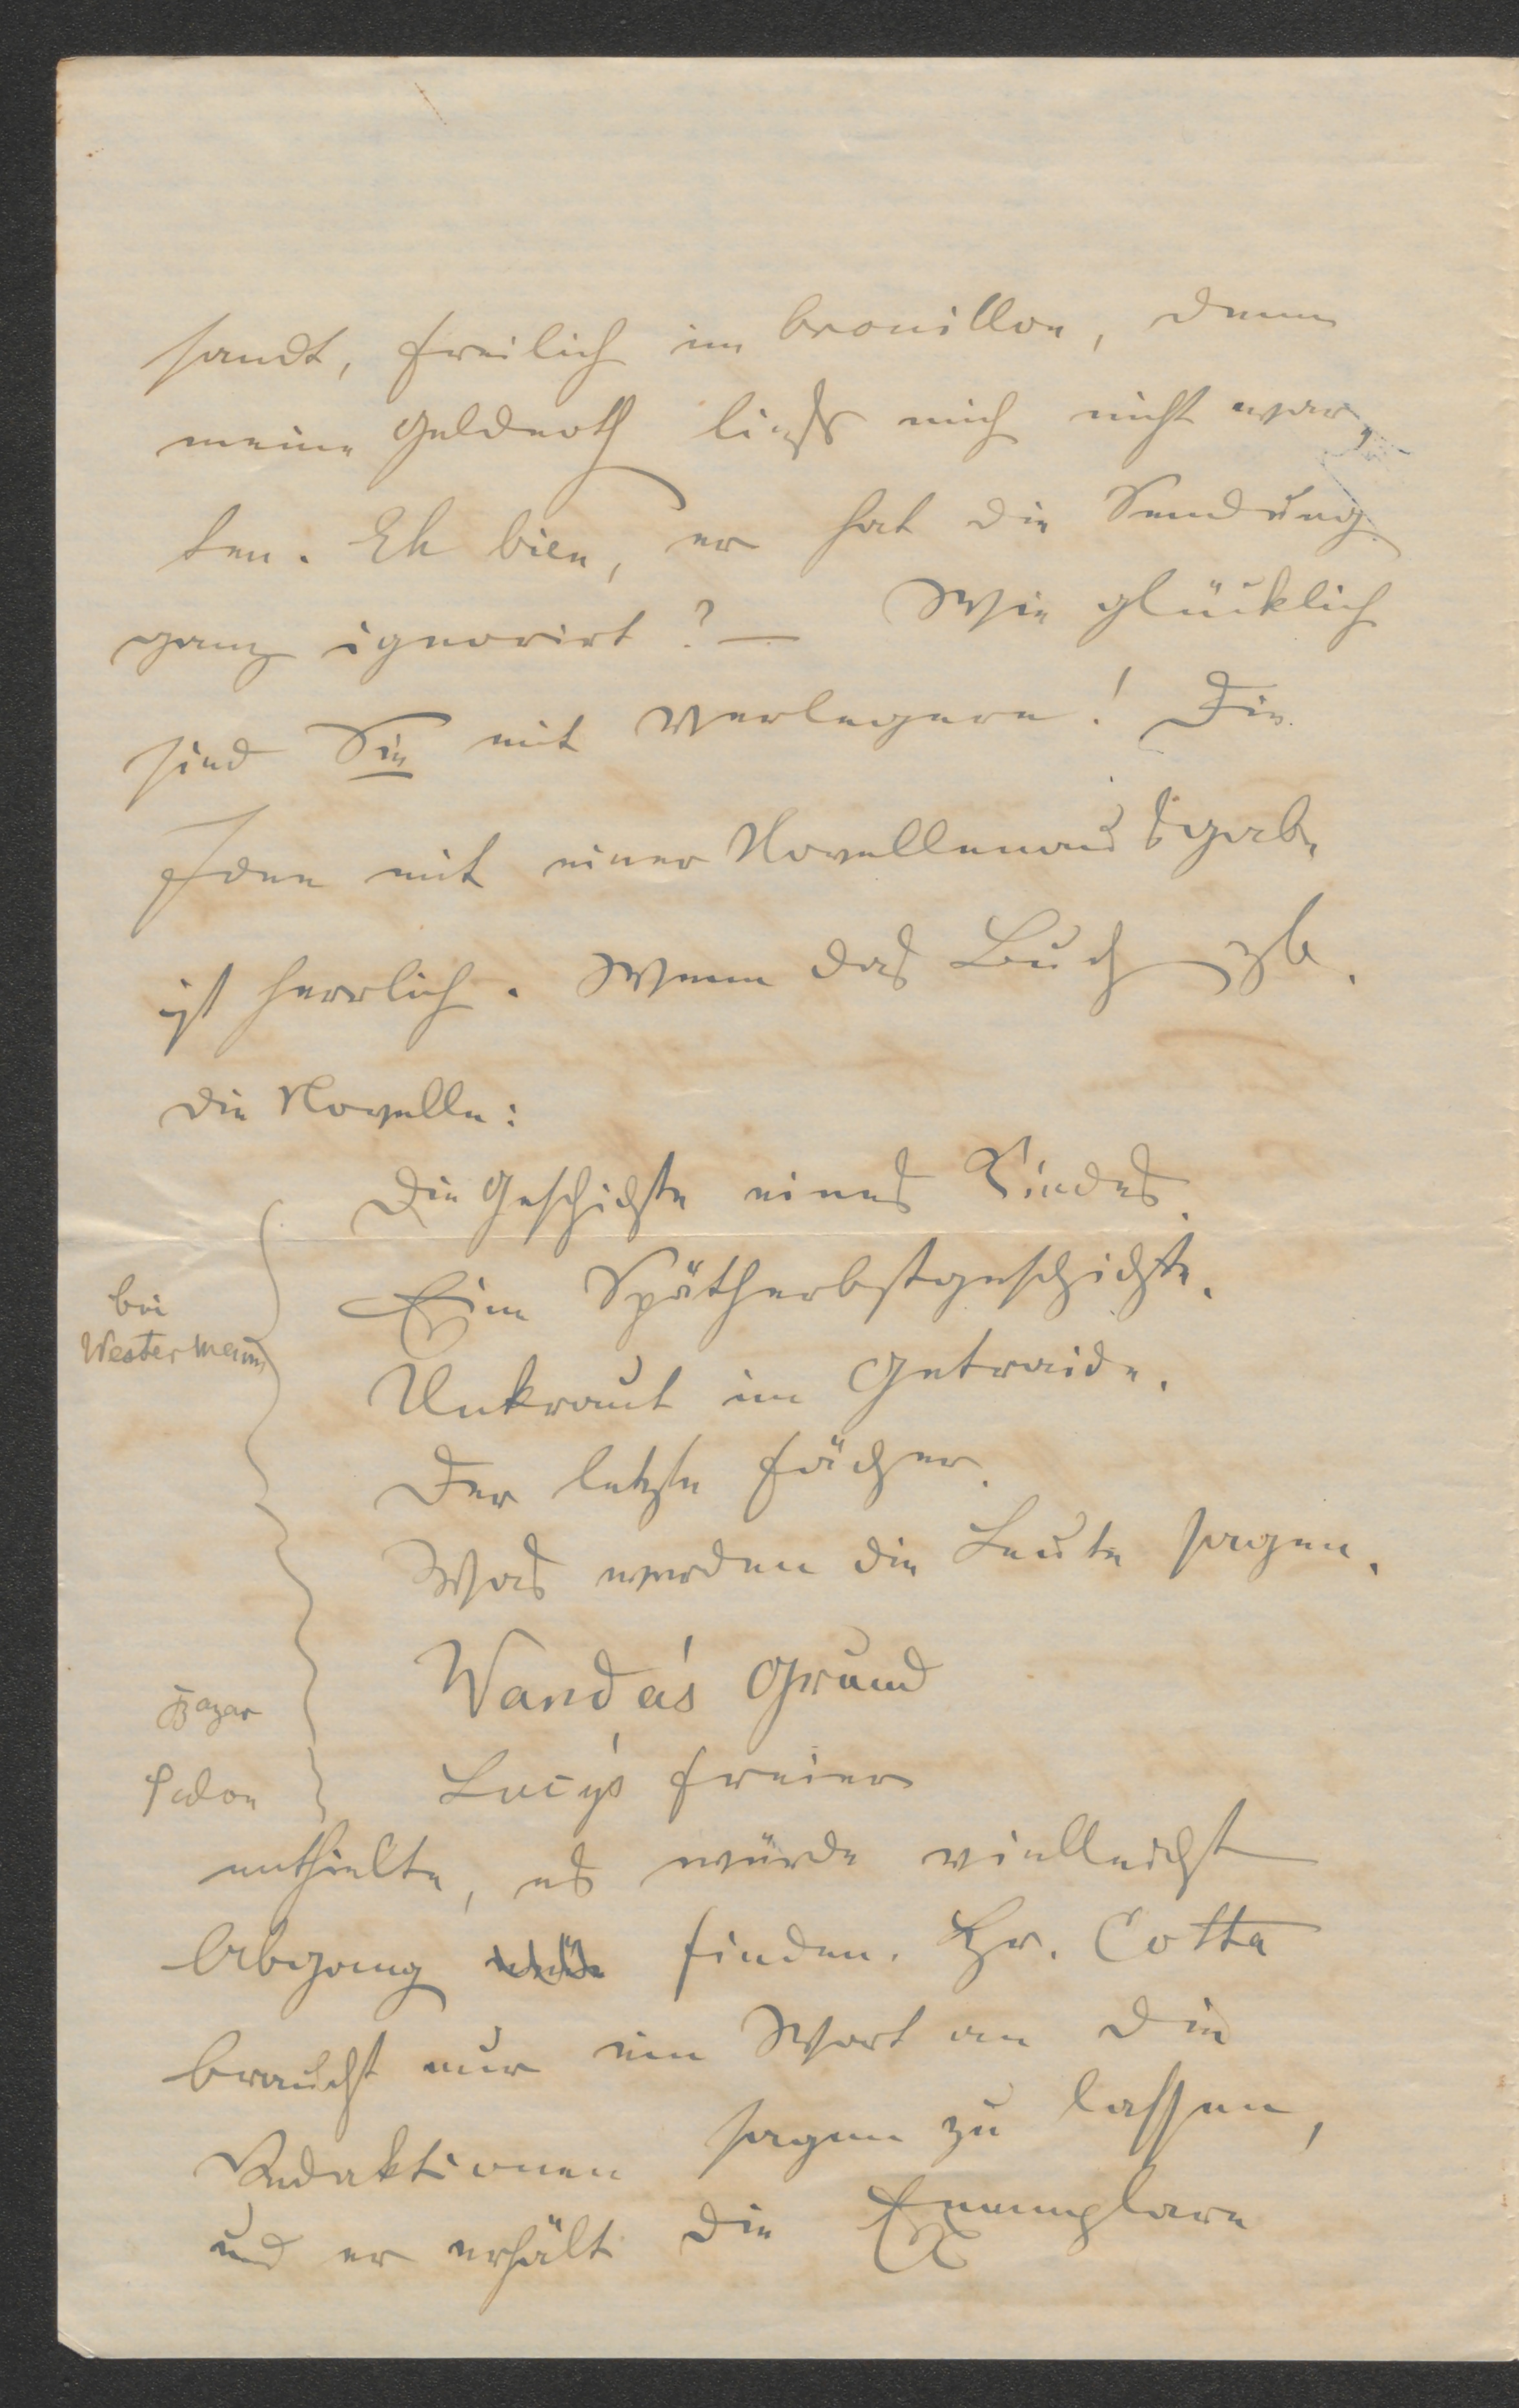 sandt, freilich im brouillon, denn
meine Geldnoth ließ mich nicht war,
ten. Eh bien, er hat die Sendung
ganz ignorirt? — Wie glücklich
sind Sie mit Verlegern! Die
Idee mit einer Novellenausgabe
ist herrlich. Wenn das Buch zb.
die Novelle:
Die Geschichte eines Kindes.
Eine Spätherbstgeschichte.
bei
Westermann
Unkraut im Getraide.
Der letzte Fächer.
Was werden die Leute sagen.
Wanda's Grund
Bazar
Lucy's Freier
Salon
enthielte, es würde vielleicht
Abgang finden. Hr. Cotta
braucht nur ein Wort an die
Redaktionen sagen zu lassen,
und er erhält die Exemplare